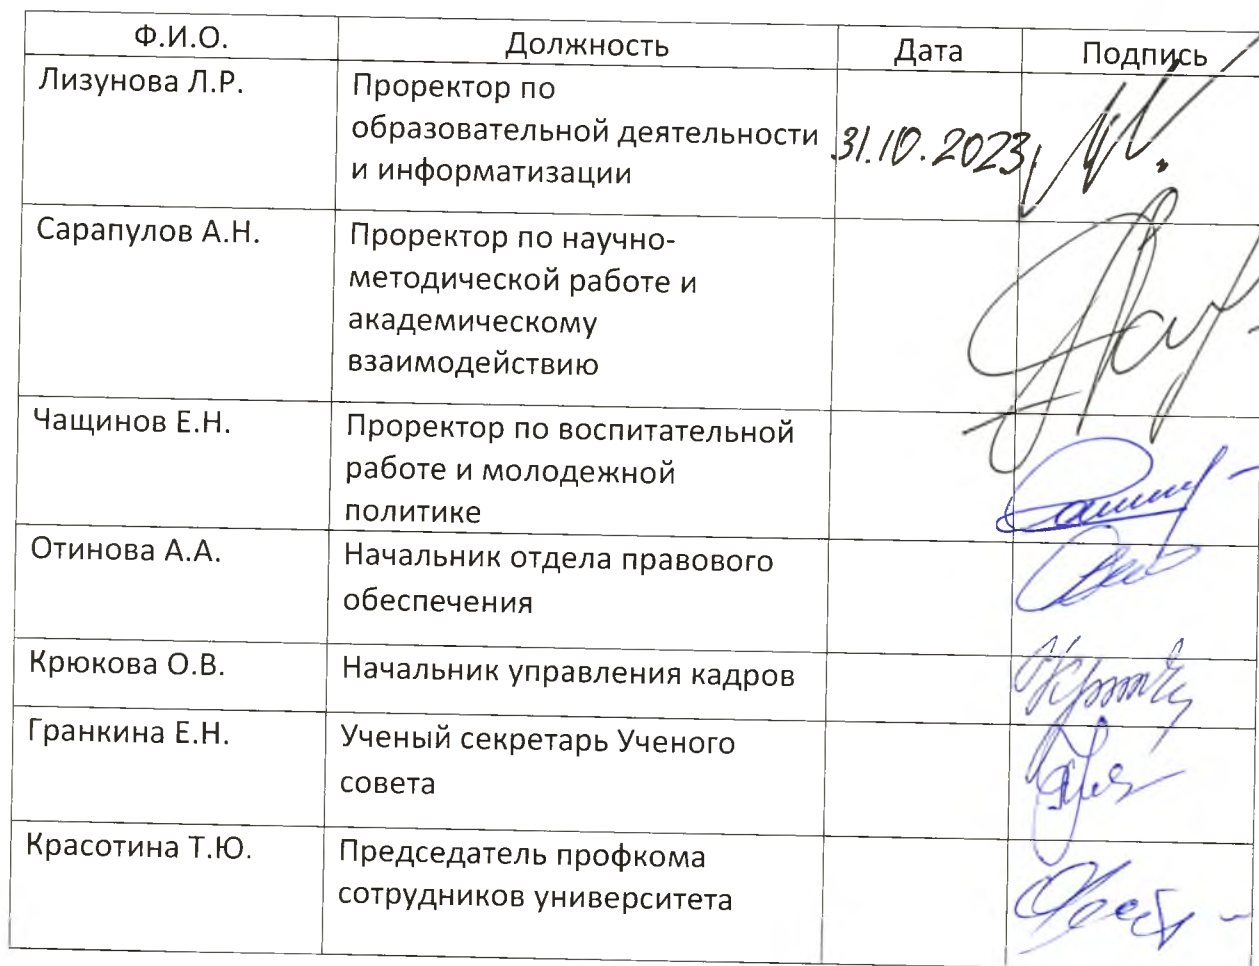 Ф.И.О. Должность Дата Подпись
Лизунова Л.Р. Проректор по
образовательной деятельности
и информатизации
31.10.2023
Сарапулов А.Н. Проректор по научно-
методической работе и
академическому
взаимодействию
Чащинов Е.Н. Проректор по воспитательной
работе и молодежной
политике
Отинова А.А. Начальник отдела правового
обеспечения
Крюкова О.В. Начальник управления кадров
Гранкина Е.Н. Ученый секретарь Ученого
совета
Красотина Т.Ю. Председатель профкома
сотрудников университета